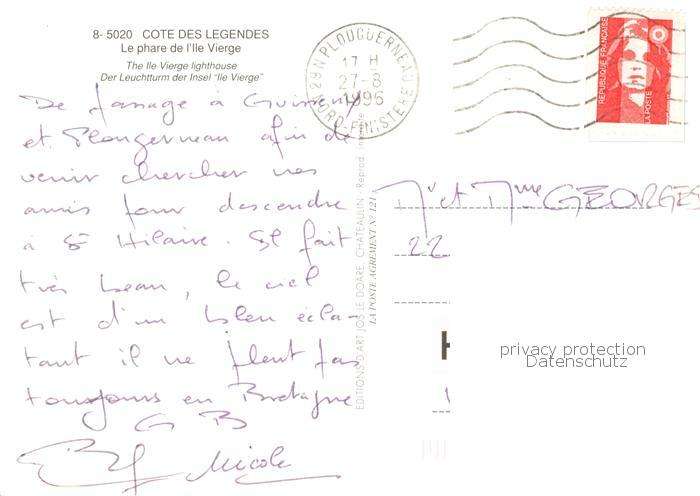 8- 5020 COTE DES LEGENDES
Le phare de l'Ile Vierge
The Ile Vierge lighthouse
Der Leuchtturm der Insel "Ile Vierge"
29N PLOUGUERNEAU
17 H
27-8
1996
NORD-FINISTERE
REPUBLIQUE FRANÇAISE
LA POSTE
De passage à
et Plouguerneau afin de
venir chercher nos
amis pour descendre
à St Hilaire. Il fait
très beau, le ciel
est d'un bleu écla-
tant il ne pleut pas
toujours en Bretagne
G B
Nicole
EDITIONS D'ART JOS LE DOARE CHATEAULIN - Reprod. interdite
LA POSTE AGREMENT N° 121
Mr et Mme GEORGES
22
privacy protection
Datenschutz